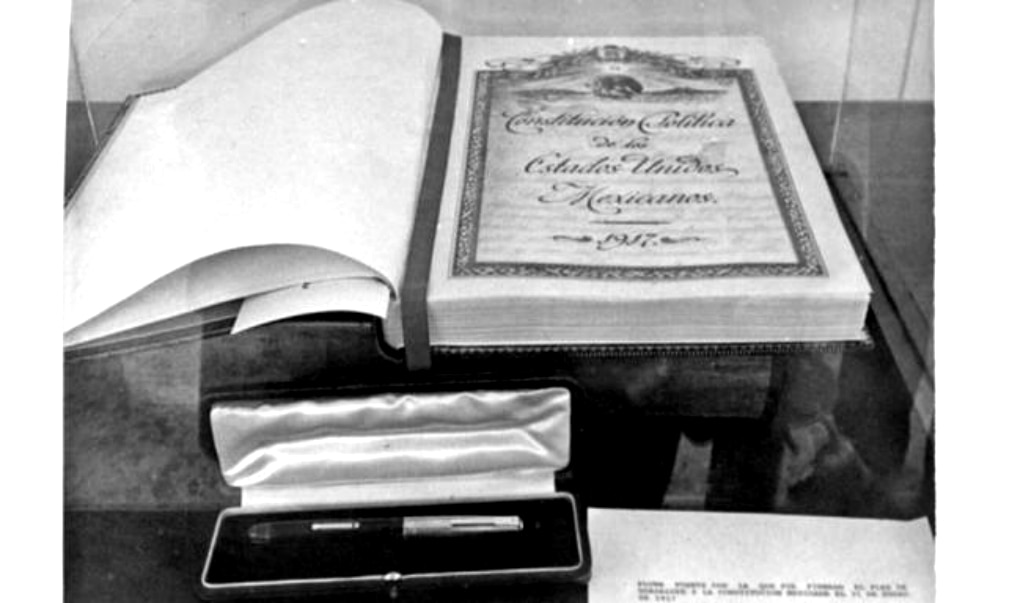 Constitución Política
de los
Estados Unidos
Mexicanos.
1917.
PLUMA FUENTE CON LA QUE FUE FIRMADO EL PLAN DE
GUADALUPE Y LA CONSTITUCION MEXICANA EL 31 DE ENERO
DE 1917